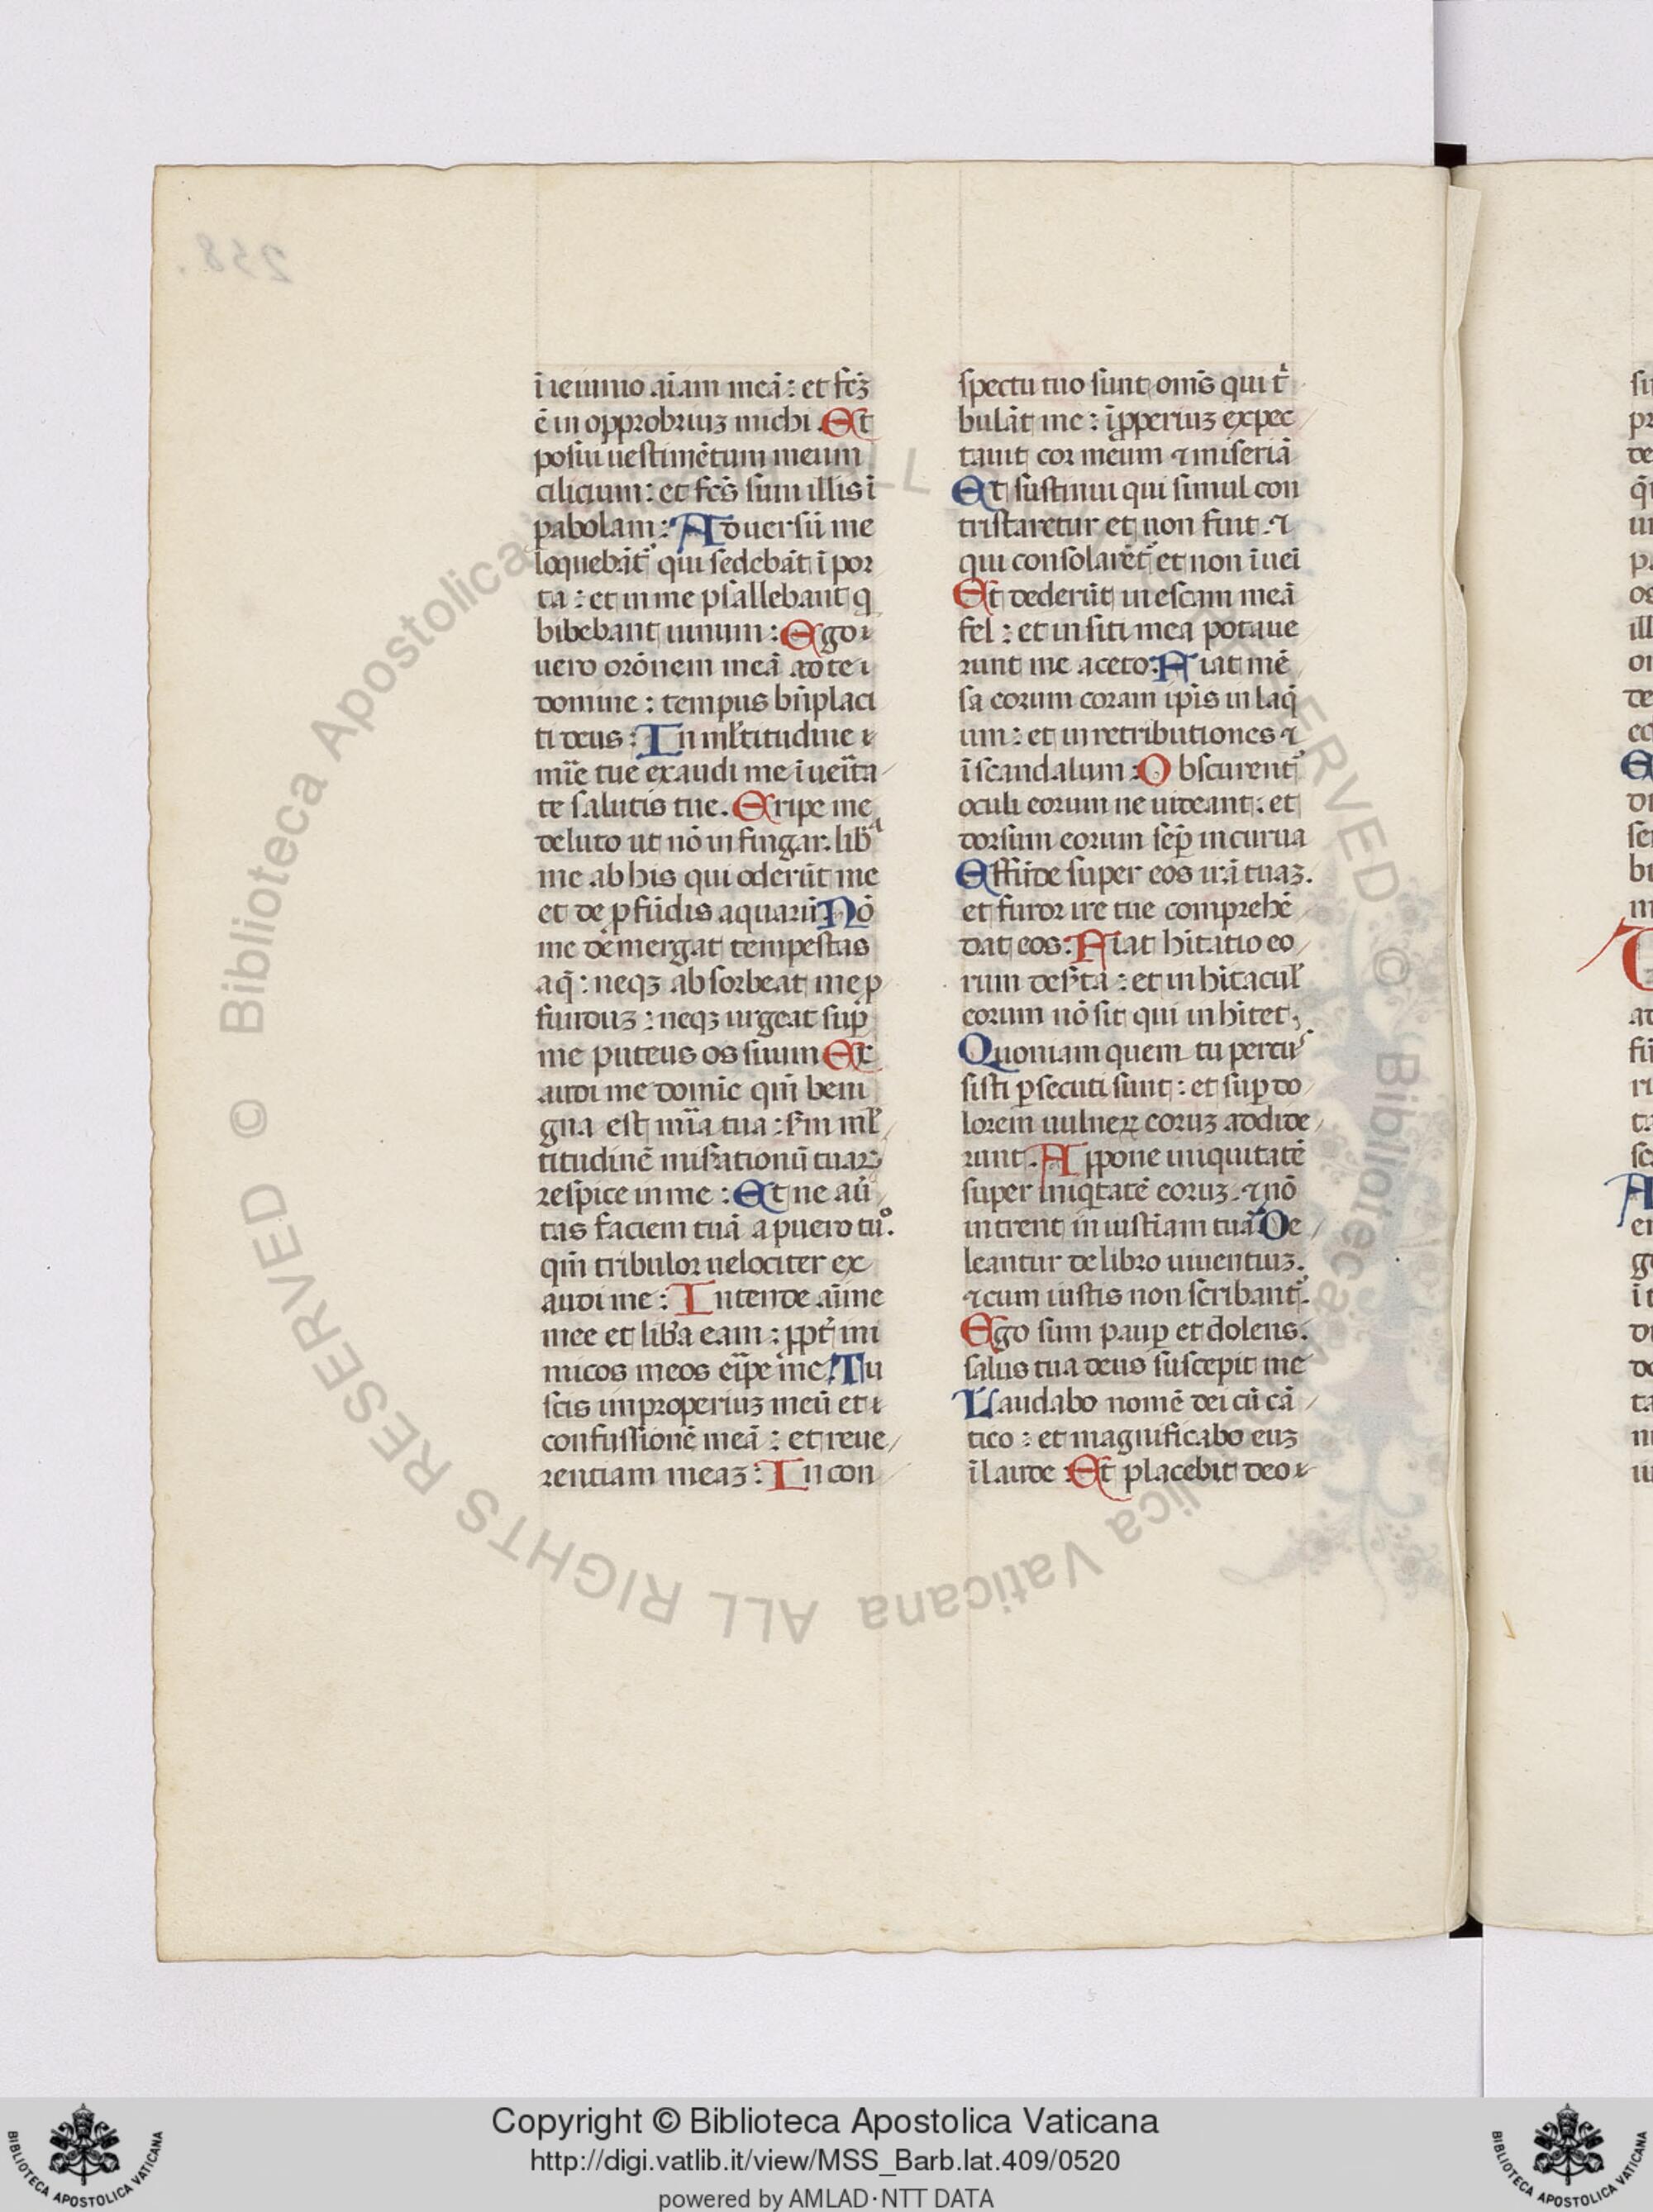 ī ieiunio aīam meā : et fc̄ꝫ
ē in opprobriuꝫ michi . Et
posui uestimētum meum
cilicium : et fcs̄ sum illis ī
pabolam : Aduersū me
loquebāt᷑ qui sedebāt ī por
ta : et in me psallebant q
bibebant uinum : Ego ι
uero orōnem meā ad te ι
domine : tempus bn̄placi
ti deus : In ml̄titudine ι
mīe tue exaudi me ī uēita
te salutis tue . Eripe me
de luto ut nō in fingar . libᵃ
me ab his qui oderūt me
et de ꝓfūdis aquarū Nō
me demergat tempestas
aq̄ : neqꝫ absorbeat me p
funduꝫ : neqꝫ urgeat suꝑ
me puteus os suum Ex
audi me domīe qm̄ beni
gna est mīa tua : scd̄m ml̄
titudinē mis̄ationū tuaꝝ
respice in me : Et ne au̅
tas faciem tuā a puero tuº .
qm̄ tribulor uelociter ex
audi me : Intende aīme
mee et lib̄a eam : ꝓpt̄ ini
micos meos eīpe me : Tu
scis improperiuꝫ meū et ι
confussionē meā : et reue
rentiam meaꝫ : In con
spectu tuo sunt om̄s qui t̄
bulāt me : īꝓperiuꝫ expec
tauit cor meum ⁊ miseriā
Et sustinui qui simul con
tristaretur et non fuit . ⁊
qui consolarēt᷑ et non īuēi
Et dederūt in escam meā
fel : et in siti mea potaue
runt me aceto : Fiat mē
sa eorum coram ip̄is in laq̄
um : et in retributiones ⁊
ī scandalum : Obscurent᷑
oculi eorum ne uideant : et
dorsum eorum seꝑ incurua
Effūde super eos irā tuaꝫ .
et furor ire tue comprehē
dat eos : Fiat hītatio eo
rum des̄ta : et in hītacul̄
eorum nō sit qui inhītet ,
Quoniam quem tu percu
sisti ꝑsecuti sunt : et suꝑ do
lorem uulneꝝ eoruꝫ addide
runt . Appone iniquitatē
super iniqͥtatē eoruꝫ . ⁊ nō
intrent in iustīam tuā De
leantur de libro uiuentiuꝫ .
⁊ cum iustis non scribant᷑ .
Ego sum pauꝑ et dolens .
salus tua deus suscepit me
Laudabo nomē dei cū cā
tico : et magnificabo euꝫ
ī laude Et placebit deo ι
Copyright © Biblioteca Apostolica Vaticana
http://digi.vatlib.it/view/MSS_Barb.lat.409/0520
powered by AMLAD·NTT DATA